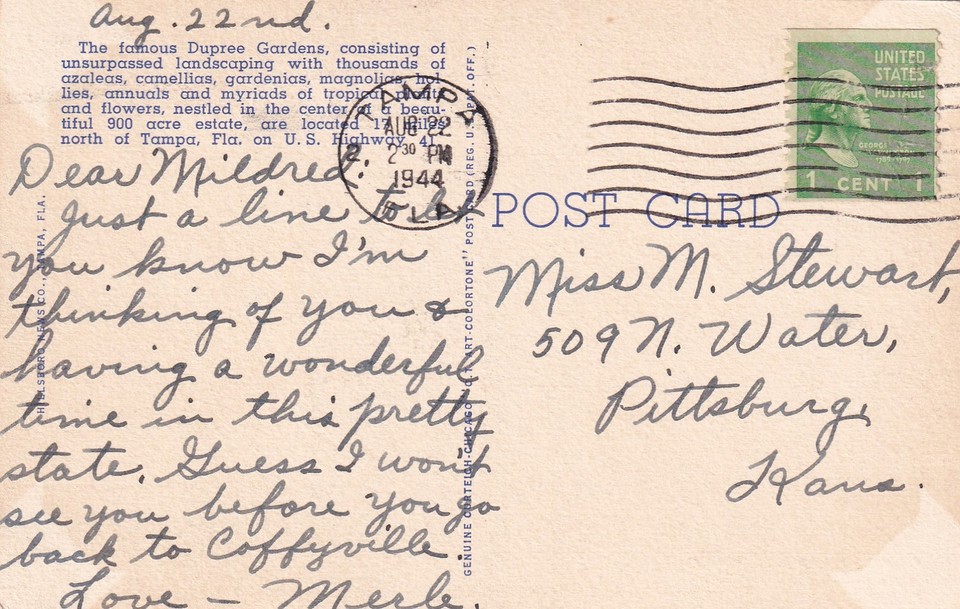 Aug. 22nd.
The famous Dupree Gardens, consisting of
unsurpassed landscaping with thousands of
azaleas, camellias, gardenias, magnolias, hol-
lies, annuals and myriads of tropical plants
and flowers, nestled in the center of a beau-
tiful 900 acre estate, are located 17 miles
north of Tampa, Fla. on U.S. Highway 41.
Dear Mildred:
Just a line to let
you know I'm
thinking of you &
having a wonderful
time in this pretty
state. Guess I won't
see you before you go
back to Coffyville.
Love – Merle.
HILLSBORO NEWS CO., TAMPA, FLA.
GENUINE CURTEICH-CHICAGO "C.T. ART-COLORTONE" POST CARD (REG. U.S. PAT. OFF.)
TAMPA
AUG 22
2 30 PM
1944
FLA.
2
UNITED
STATES
POSTAGE
GEORGE
WASHINGTON
1789-1797
1 CENT 1
POST CARD
Miss M. Stewart,
509 N. Water,
Pittsburg,
Kans.